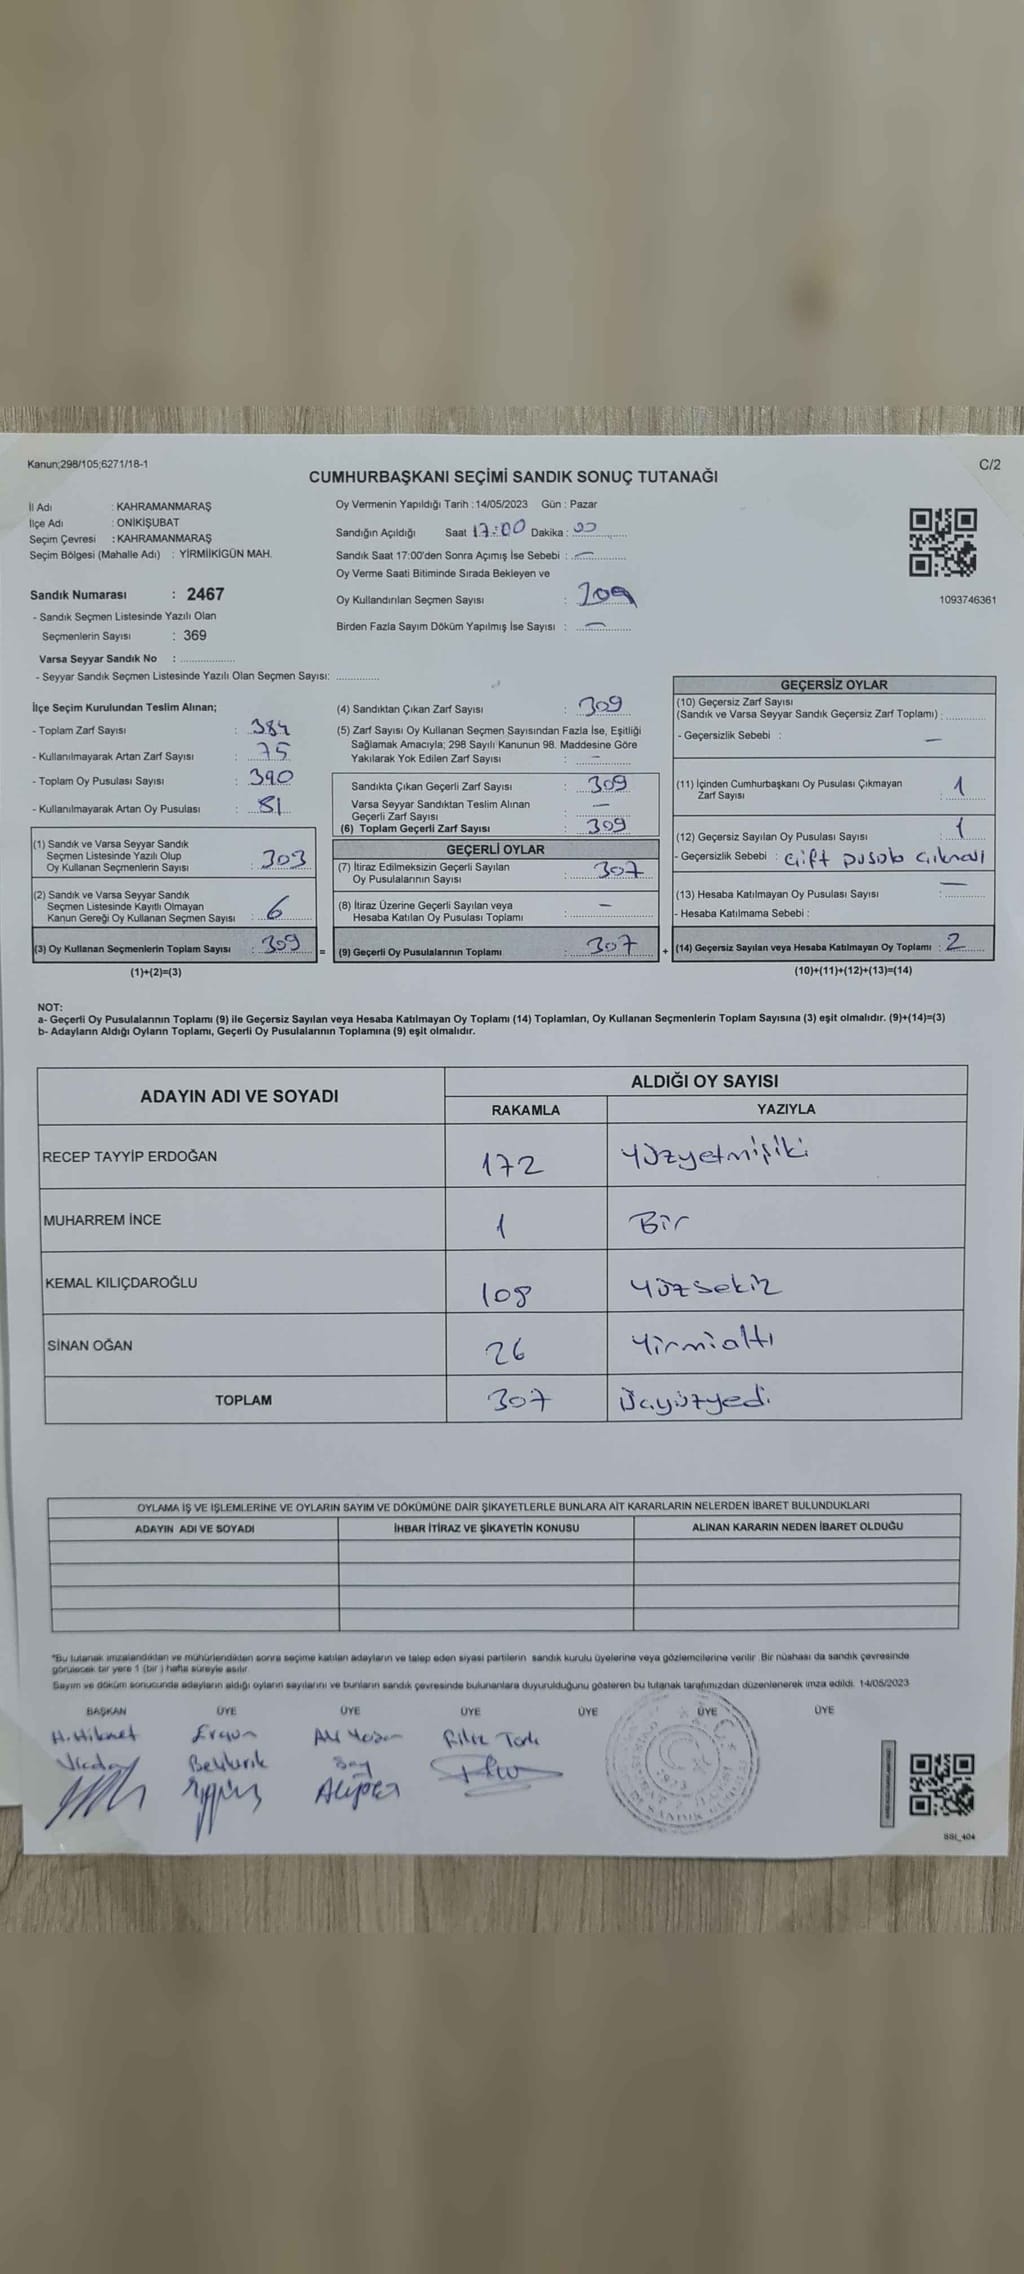 Kanun;298/105;6271/18-1
C/2
CUMHURBAŞKANI SEÇİMİ SANDIK SONUÇ TUTANAĞI
İl Adı : KAHRAMANMARAŞ
İlçe Adı : ONİKİŞUBAT
Seçim Çevresi : KAHRAMANMARAŞ
Seçim Bölgesi (Mahalle Adı) : YİRMİİKİGÜN MAH.
Sandık Numarası : 2467
- Sandık Seçmen Listesinde Yazılı Olan
Seçmenlerin Sayısı : 369
Varsa Seyyar Sandık No :
- Seyyar Sandık Seçmen Listesinde Yazılı Olan Seçmen Sayısı:
Oy Vermenin Yapıldığı Tarih : 14/05/2023 Gün : Pazar
Sandığın Açıldığı Saat 17:00 Dakika :
Sandık Saat 17:00'den Sonra Açımış İse Sebebi : —
Oy Verme Saati Bitiminde Sırada Bekleyen ve
Oy Kullandırılan Seçmen Sayısı :
Birden Fazla Sayım Döküm Yapılmış İse Sayısı : —
1093746361
İlçe Seçim Kurulundan Teslim Alınan;
- Toplam Zarf Sayısı : 384
- Kullanılmayarak Artan Zarf Sayısı : 75
- Toplam Oy Pusulası Sayısı : 390
- Kullanılmayarak Artan Oy Pusulası : 81
(1) Sandık ve Varsa Seyyar Sandık
Seçmen Listesinde Yazılı Olup
Oy Kullanan Seçmenlerin Sayısı : 303
(2) Sandık ve Varsa Seyyar Sandık
Seçmen Listesinde Kayıtlı Olmayan
Kanun Gereği Oy Kullanan Seçmen Sayısı : 6
(3) Oy Kullanan Seçmenlerin Toplam Sayısı : 309
(1)+(2)=(3)
(4) Sandıktan Çıkan Zarf Sayısı : 309
(5) Zarf Sayısı Oy Kullanan Seçmen Sayısından Fazla İse, Eşitliği
Sağlamak Amacıyla; 298 Sayılı Kanunun 98. Maddesine Göre
Yakılarak Yok Edilen Zarf Sayısı : —
Sandıkta Çıkan Geçerli Zarf Sayısı : 309
Varsa Seyyar Sandıktan Teslim Alınan
Geçerli Zarf Sayısı : —
(6) Toplam Geçerli Zarf Sayısı : 309
GEÇERLİ OYLAR
(7) İtiraz Edilmeksizin Geçerli Sayılan
Oy Pusulalarının Sayısı : 307
(8) İtiraz Üzerine Geçerli Sayılan veya
Hesaba Katılan Oy Pusulası Toplamı : —
= (9) Geçerli Oy Pusulalarının Toplamı : 307
GEÇERSİZ OYLAR
(10) Geçersiz Zarf Sayısı
(Sandık ve Varsa Seyyar Sandık Geçersiz Zarf Toplamı) :
- Geçersizlik Sebebi : —
(11) İçinden Cumhurbaşkanı Oy Pusulası Çıkmayan
Zarf Sayısı : 1
(12) Geçersiz Sayılan Oy Pusulası Sayısı : 1
- Geçersizlik Sebebi : Çift pusula çıkması
(13) Hesaba Katılmayan Oy Pusulası Sayısı : —
- Hesaba Katılmama Sebebi :
+ (14) Geçersiz Sayılan veya Hesaba Katılmayan Oy Toplamı : 2
(10)+(11)+(12)+(13)=(14)
NOT:
a- Geçerli Oy Pusulalarının Toplamı (9) ile Geçersiz Sayılan veya Hesaba Katılmayan Oy Toplamı (14) Toplamları, Oy Kullanan Seçmenlerin Toplam Sayısına (3) eşit olmalıdır. (9)+(14)=(3)
b- Adayların Aldığı Oyların Toplamı, Geçerli Oy Pusulalarının Toplamına (9) eşit olmalıdır.
ADAYIN ADI VE SOYADI
ALDIĞI OY SAYISI
RAKAMLA YAZIYLA
RECEP TAYYİP ERDOĞAN 172 Yüzyetmişiki
MUHARREM İNCE 1 Bir
KEMAL KILIÇDAROĞLU 108 Yüzsekiz
SİNAN OĞAN 26 Yirmialtı
TOPLAM 307 Üçyüzyedi
OYLAMA İŞ VE İŞLEMLERİNE VE OYLARIN SAYIM VE DÖKÜMÜNE DAİR ŞİKAYETLERLE BUNLARA AİT KARARLARIN NELERDEN İBARET BULUNDUKLARI
ADAYIN ADI VE SOYADI İHBAR İTİRAZ VE ŞİKAYETİN KONUSU ALINAN KARARIN NEDEN İBARET OLDUĞU
*Bu tutanak imzalandıktan ve mühürlendikten sonra seçime katılan adayların ve talep eden siyasi partilerin sandık kurulu üyelerine veya gözlemcilerine verilir. Bir nüshası da sandık çevresinde
görülecek bir yere 1 (bir ) hafta süreyle asılır.
Sayım ve döküm sonucunda adayların aldığı oyların sayılarını ve bunların sandık çevresinde bulunanlara duyurulduğunu gösteren bu tutanak tarafımızdan düzenlenerek imza edildi. 14/05/2023
BAŞKAN ÜYE ÜYE ÜYE ÜYE ÜYE ÜYE
H. Hikmet Ergün
SBİ_404